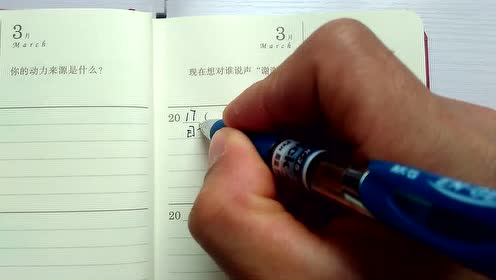 3月
March
你的动力来源是什么?
3月
March
现在想对谁说声“谢
2017 (
20